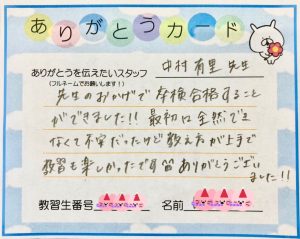 ありがとうカード
ありがとうを伝えたいスタッフ 中村有里 先生
(フルネームでお願いします！)
先生のおかげで卒検合格すること
ができました!! 最初は全然でき
なくて不安だったけど教え方が上手で
教習も楽しかったです。ありがとうござい
ました!!
教習生番号
名前